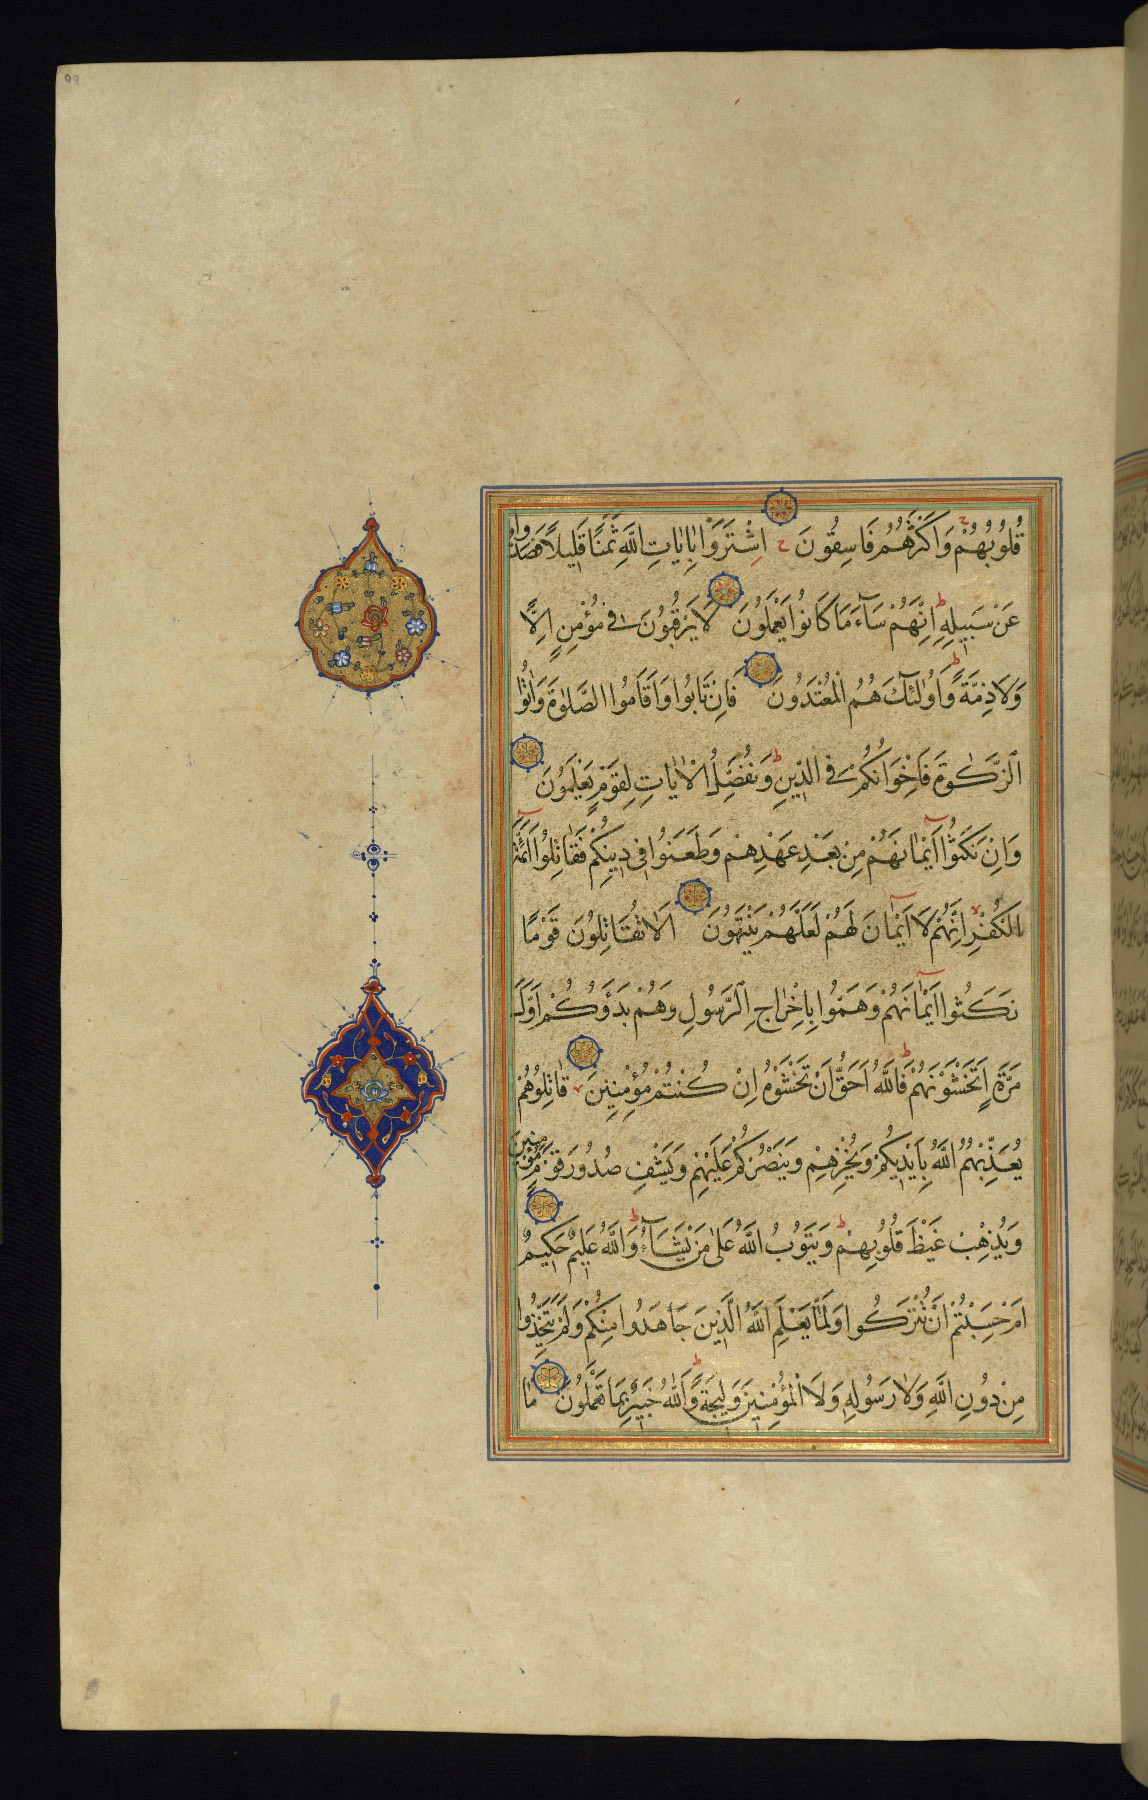 ٩٩
قُلُوبُهُمْ وَاَكْثَرُهُمْ فَاسِقُونَ اِشْتَرَوْا بِاٰيَاتِ اللّٰهِ ثَمَنًا قَلِيلًا فَصَدُّوا
عَنْ سَبِيلِهِ اِنَّهُمْ سَآءَ مَا كَانُوا يَعْمَلُونَ لَا يَرْقُبُونَ فِي مُؤْمِنٍ اِلًّا
وَلَا ذِمَّةً وَاُولٰئِكَ هُمُ الْمُعْتَدُونَ فَاِنْ تَابُوا وَاَقَامُوا الصَّلٰوةَ وَاٰتَوُا
الزَّكٰوةَ فَاِخْوَانُكُمْ فِي الدِّينِ وَنُفَصِّلُ الْاٰيَاتِ لِقَوْمٍ يَعْلَمُونَ
وَاِنْ نَكَثُوا اَيْمَانَهُمْ مِنْ بَعْدِ عَهْدِهِمْ وَطَعَنُوا فِي دِينِكُمْ فَقَاتِلُوا اَئِمَّةَ
الْكُفْرِ اِنَّهُمْ لَا اَيْمَانَ لَهُمْ لَعَلَّهُمْ يَنْتَهُونَ اَلَا تُقَاتِلُونَ قَوْمًا
نَكَثُوا اَيْمَانَهُمْ وَهَمُّوا بِاِخْرَاجِ الرَّسُولِ وَهُمْ بَدَؤُكُمْ اَوَّلَ
مَرَّةٍ اَتَخْشَوْنَهُمْ فَاللّٰهُ اَحَقُّ اَنْ تَخْشَوْهُ اِنْ كُنْتُمْ مُؤْمِنِينَ قَاتِلُوهُمْ
يُعَذِّبْهُمُ اللّٰهُ بِاَيْدِيكُمْ وَيُخْزِهِمْ وَيَنْصُرْكُمْ عَلَيْهِمْ وَيَشْفِ صُدُورَ قَوْمٍ مُؤْمِنِينَ
وَيُذْهِبْ غَيْظَ قُلُوبِهِمْ وَيَتُوبُ اللّٰهُ عَلٰى مَنْ يَشَآءُ وَاللّٰهُ عَلِيمٌ حَكِيمٌ
اَمْ حَسِبْتُمْ اَنْ تُتْرَكُوا وَلَمَّا يَعْلَمِ اللّٰهُ الَّذِينَ جَاهَدُوا مِنْكُمْ وَلَمْ يَتَّخِذُوا
مِنْ دُونِ اللّٰهِ وَلَا رَسُولِهِ وَلَا الْمُؤْمِنِينَ وَلِيجَةً وَاللّٰهُ خَبِيرٌ بِمَا تَعْمَلُونَ مَا